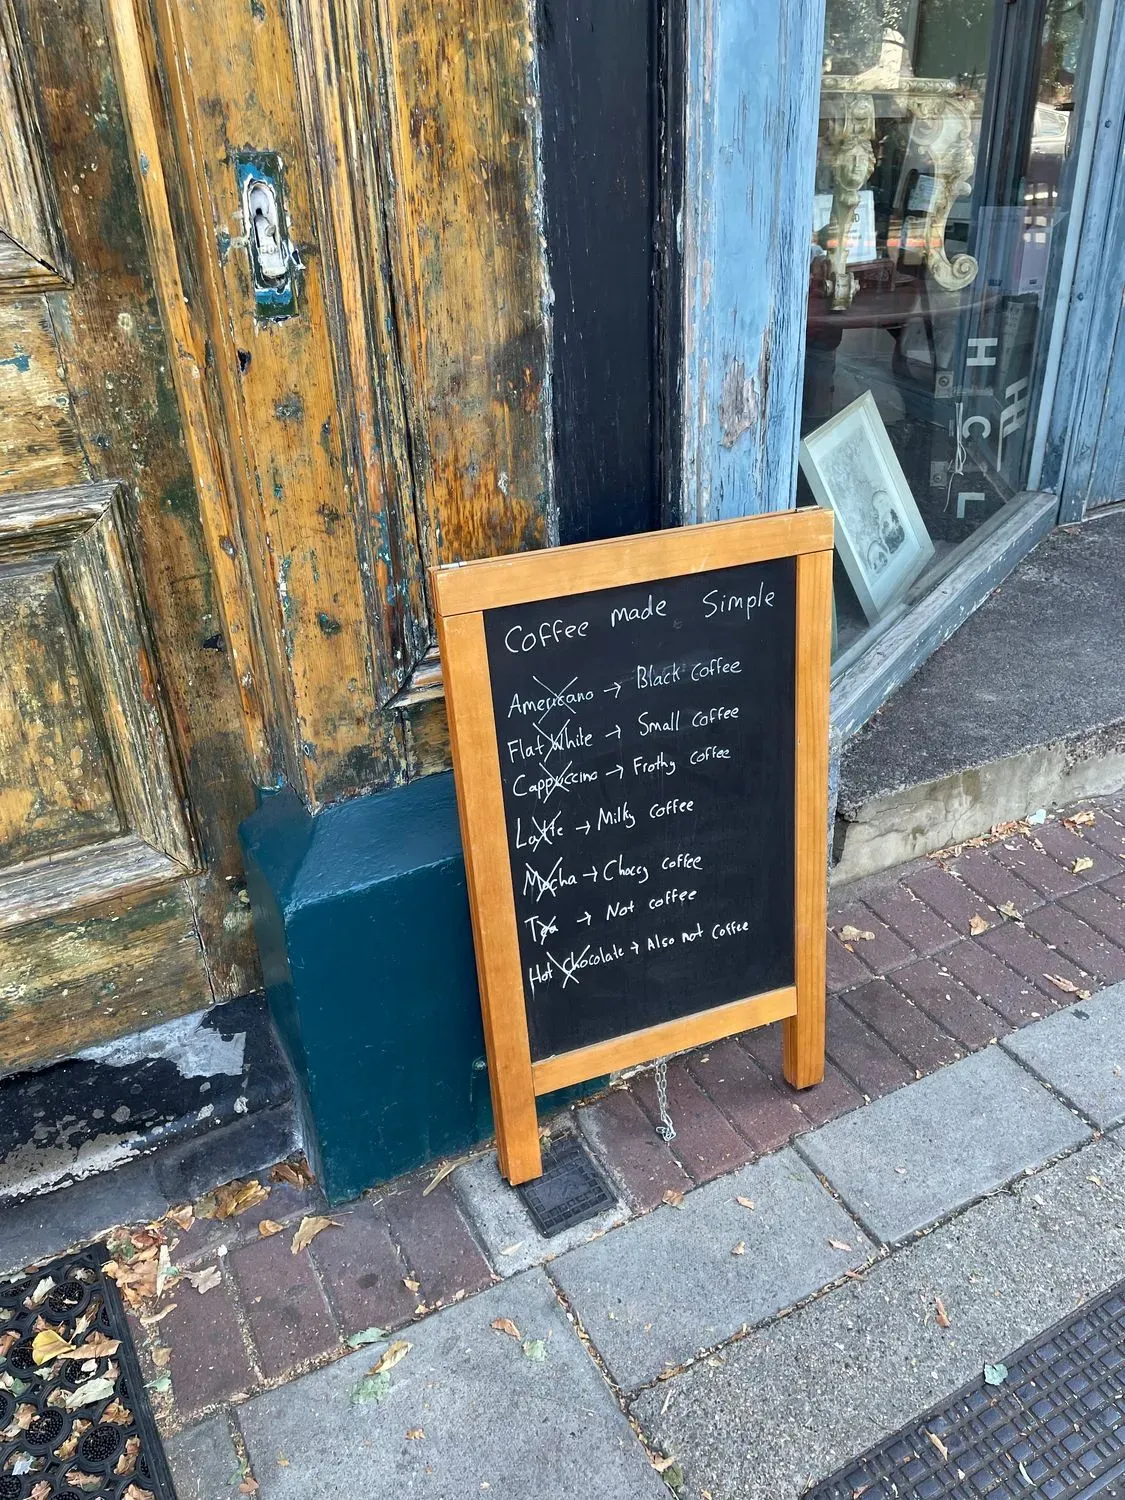 Coffee made Simple
Americano → Black Coffee
Flat White → Small Coffee
Cappuccino → Frothy coffee
Latte → Milky coffee
Mocha → Choccy coffee
Tea → Not coffee
Hot Chocolate → Also not Coffee